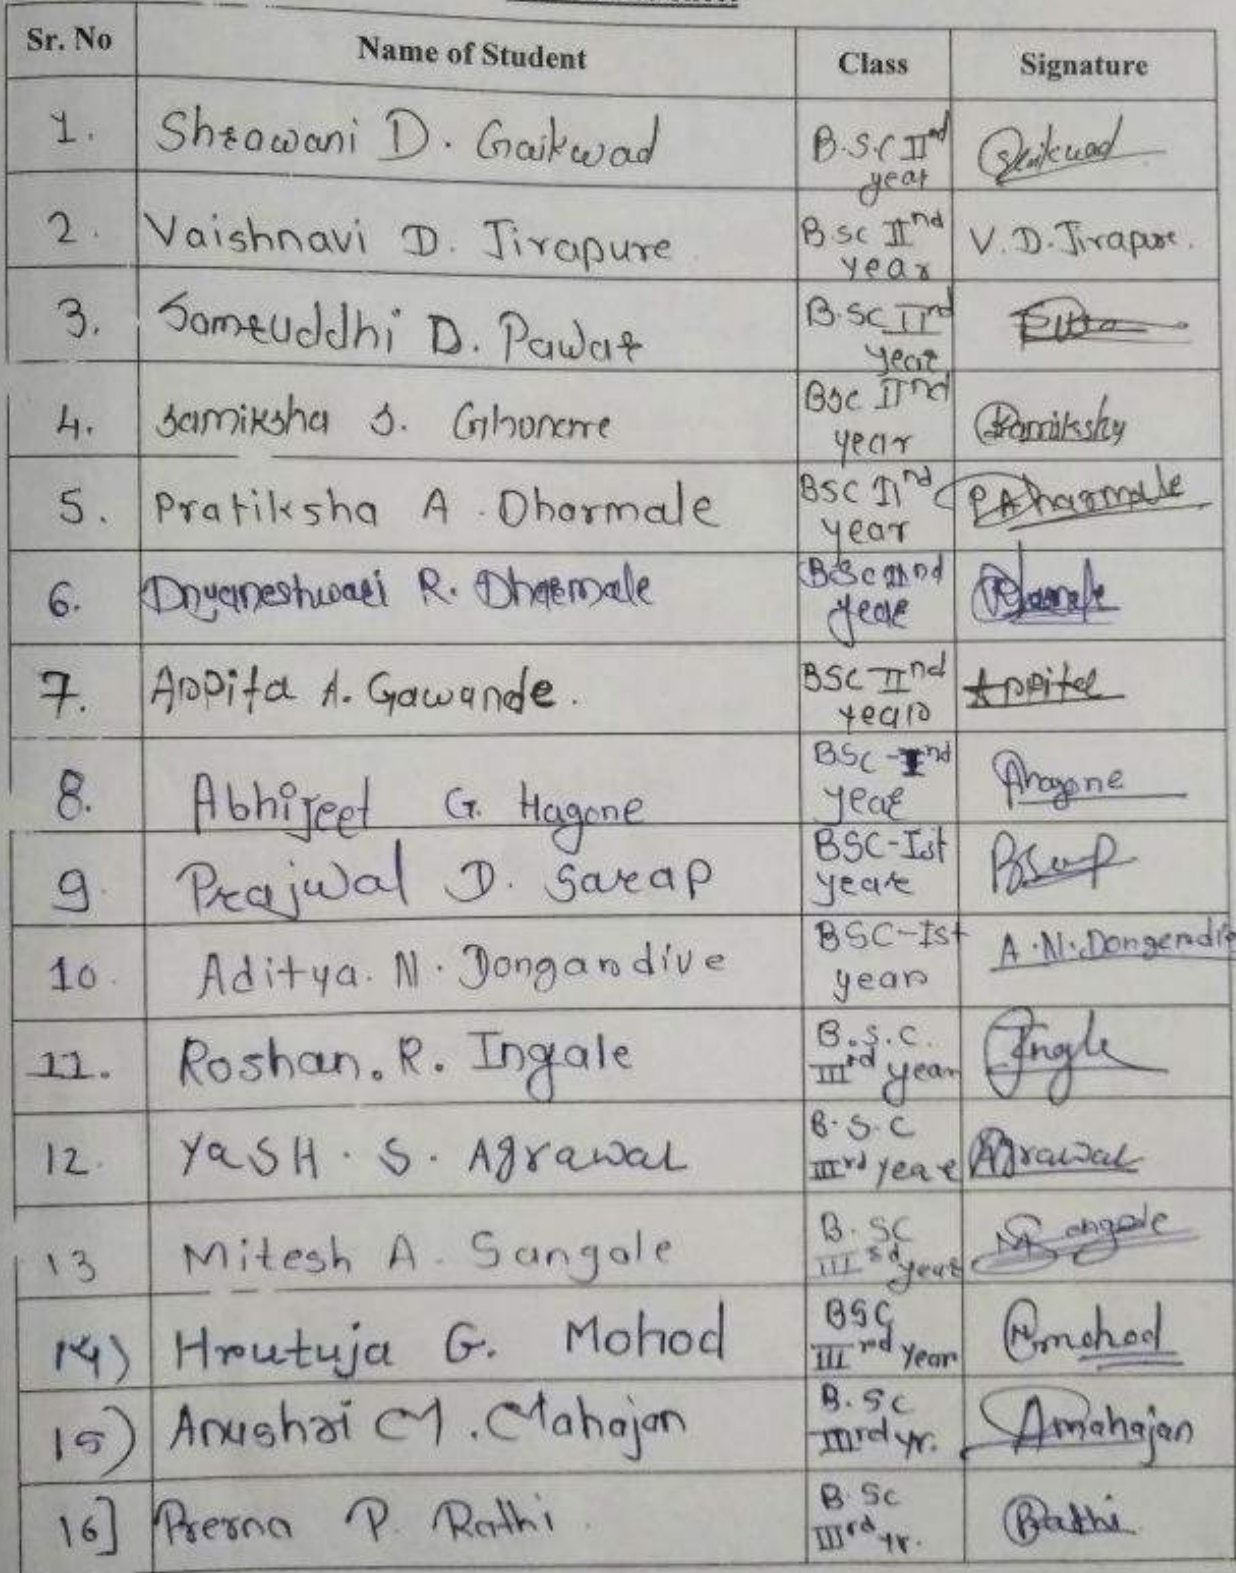 Sr. No Name of Student Class Signature
1. Shrawani D. Gaikwad B.S.C IInd year Gaikwad
2. Vaishnavi D. Jirapure B sc IInd year V. D. Jirapure.
3. Samruddhi D. Pawar B.sc IInd year
4. Samiksha S. Ghonmre BSc IInd year Samiksha
5. Pratiksha A. Dharmale BSC IInd year PADharmale
6. Dnyaneshwari R. Dharmale BSc IInd year
7. Arpita A. Gawande. BSC-IInd year Arpita
8. Abhijeet G. Hagone BSC- nd year Ahagone
9. Prajwal D. Sarap BSC-Ist year
10. Aditya. N. Dongardive BSC-Ist year A.N.Dongerdive
11. Roshan. R. Ingale B.S.C. IIIrd year Ingle
12. YaSH. S. Agrawal B.S.C IIIrd year Agrawal
13 Mitesh A. Sangole B. SC IIIrd year Sangole
14) Hrutuja G. Mohod BSC IIIrd year Gmohod
15) Anushri M. Mahajan B.Sc IIIrd yr. Amahajan
16] Prerna P. Rathi. B. Sc IIIrd yr. Rathi